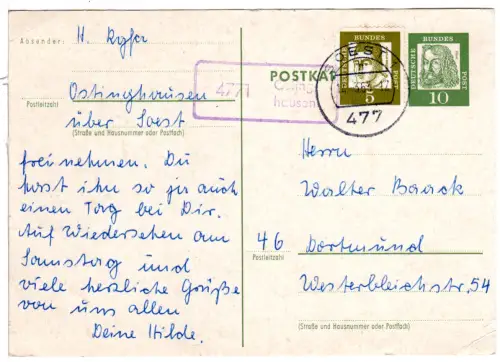 Absender: H.
Ostinghausen
Postleitzahl
über Soest
(Straße und Hausnummer oder Postfach)
frei nehmen. Du
hast ihn so ja auch
einen Tag bei Dir.
Auf Wiedersehen am
Samstag und
viele herzliche Grüße
von uns allen
Deine Hilde.
4771
hausen
POSTKAR
DEUTSCHE BUNDES POST
5
DEUTSCHE BUNDES POST
10
SOEST
477
Herrn
Walter Baack
46 Dortmund
Postleitzahl
Westerbleichstr. 54
(Straße und Hausnummer oder Postfach)